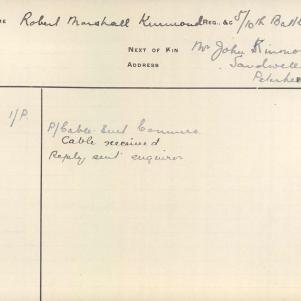 Robert Marshall Kinmond REG. No 5/10th Batt
NEXT OF KIN Mr John Kinmo
ADDRESS Sandwell
Peterhe
1/P. P/Cable Sent Commrs.
Cable received
Reply sent enquirer